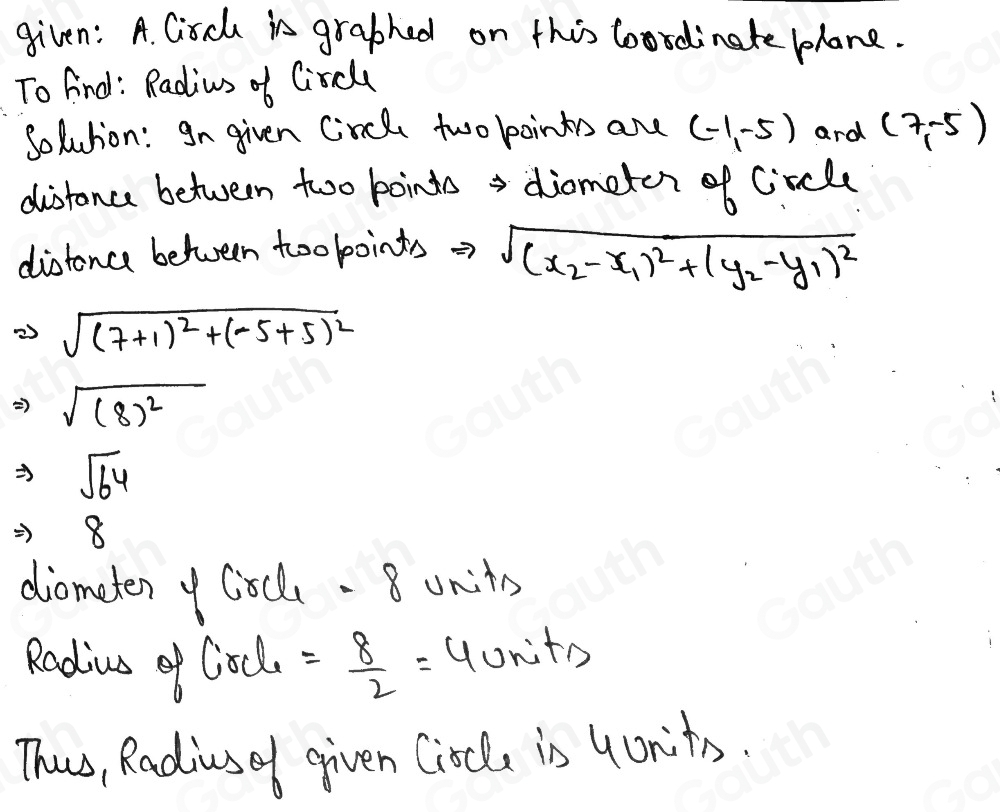 given: A. Circle is graphed on this Coordinate plane.
To find: Radius of Circle
Solution: In given Circle two points are (-1,-5) and (7,-5)
distance between two points → diameter of Circle
distance between two points ⇒ √(x₂-x₁)²+(y₂-y₁)²
⇒ √(7+1)²+(-5+5)²
⇒ √(8)²
⇒ √64
⇒ 8
diameter of Circle - 8 units
Radius of Circle = 8/2 = 4 units
Thus, Radius of given Circle is 4 units.
Gauth